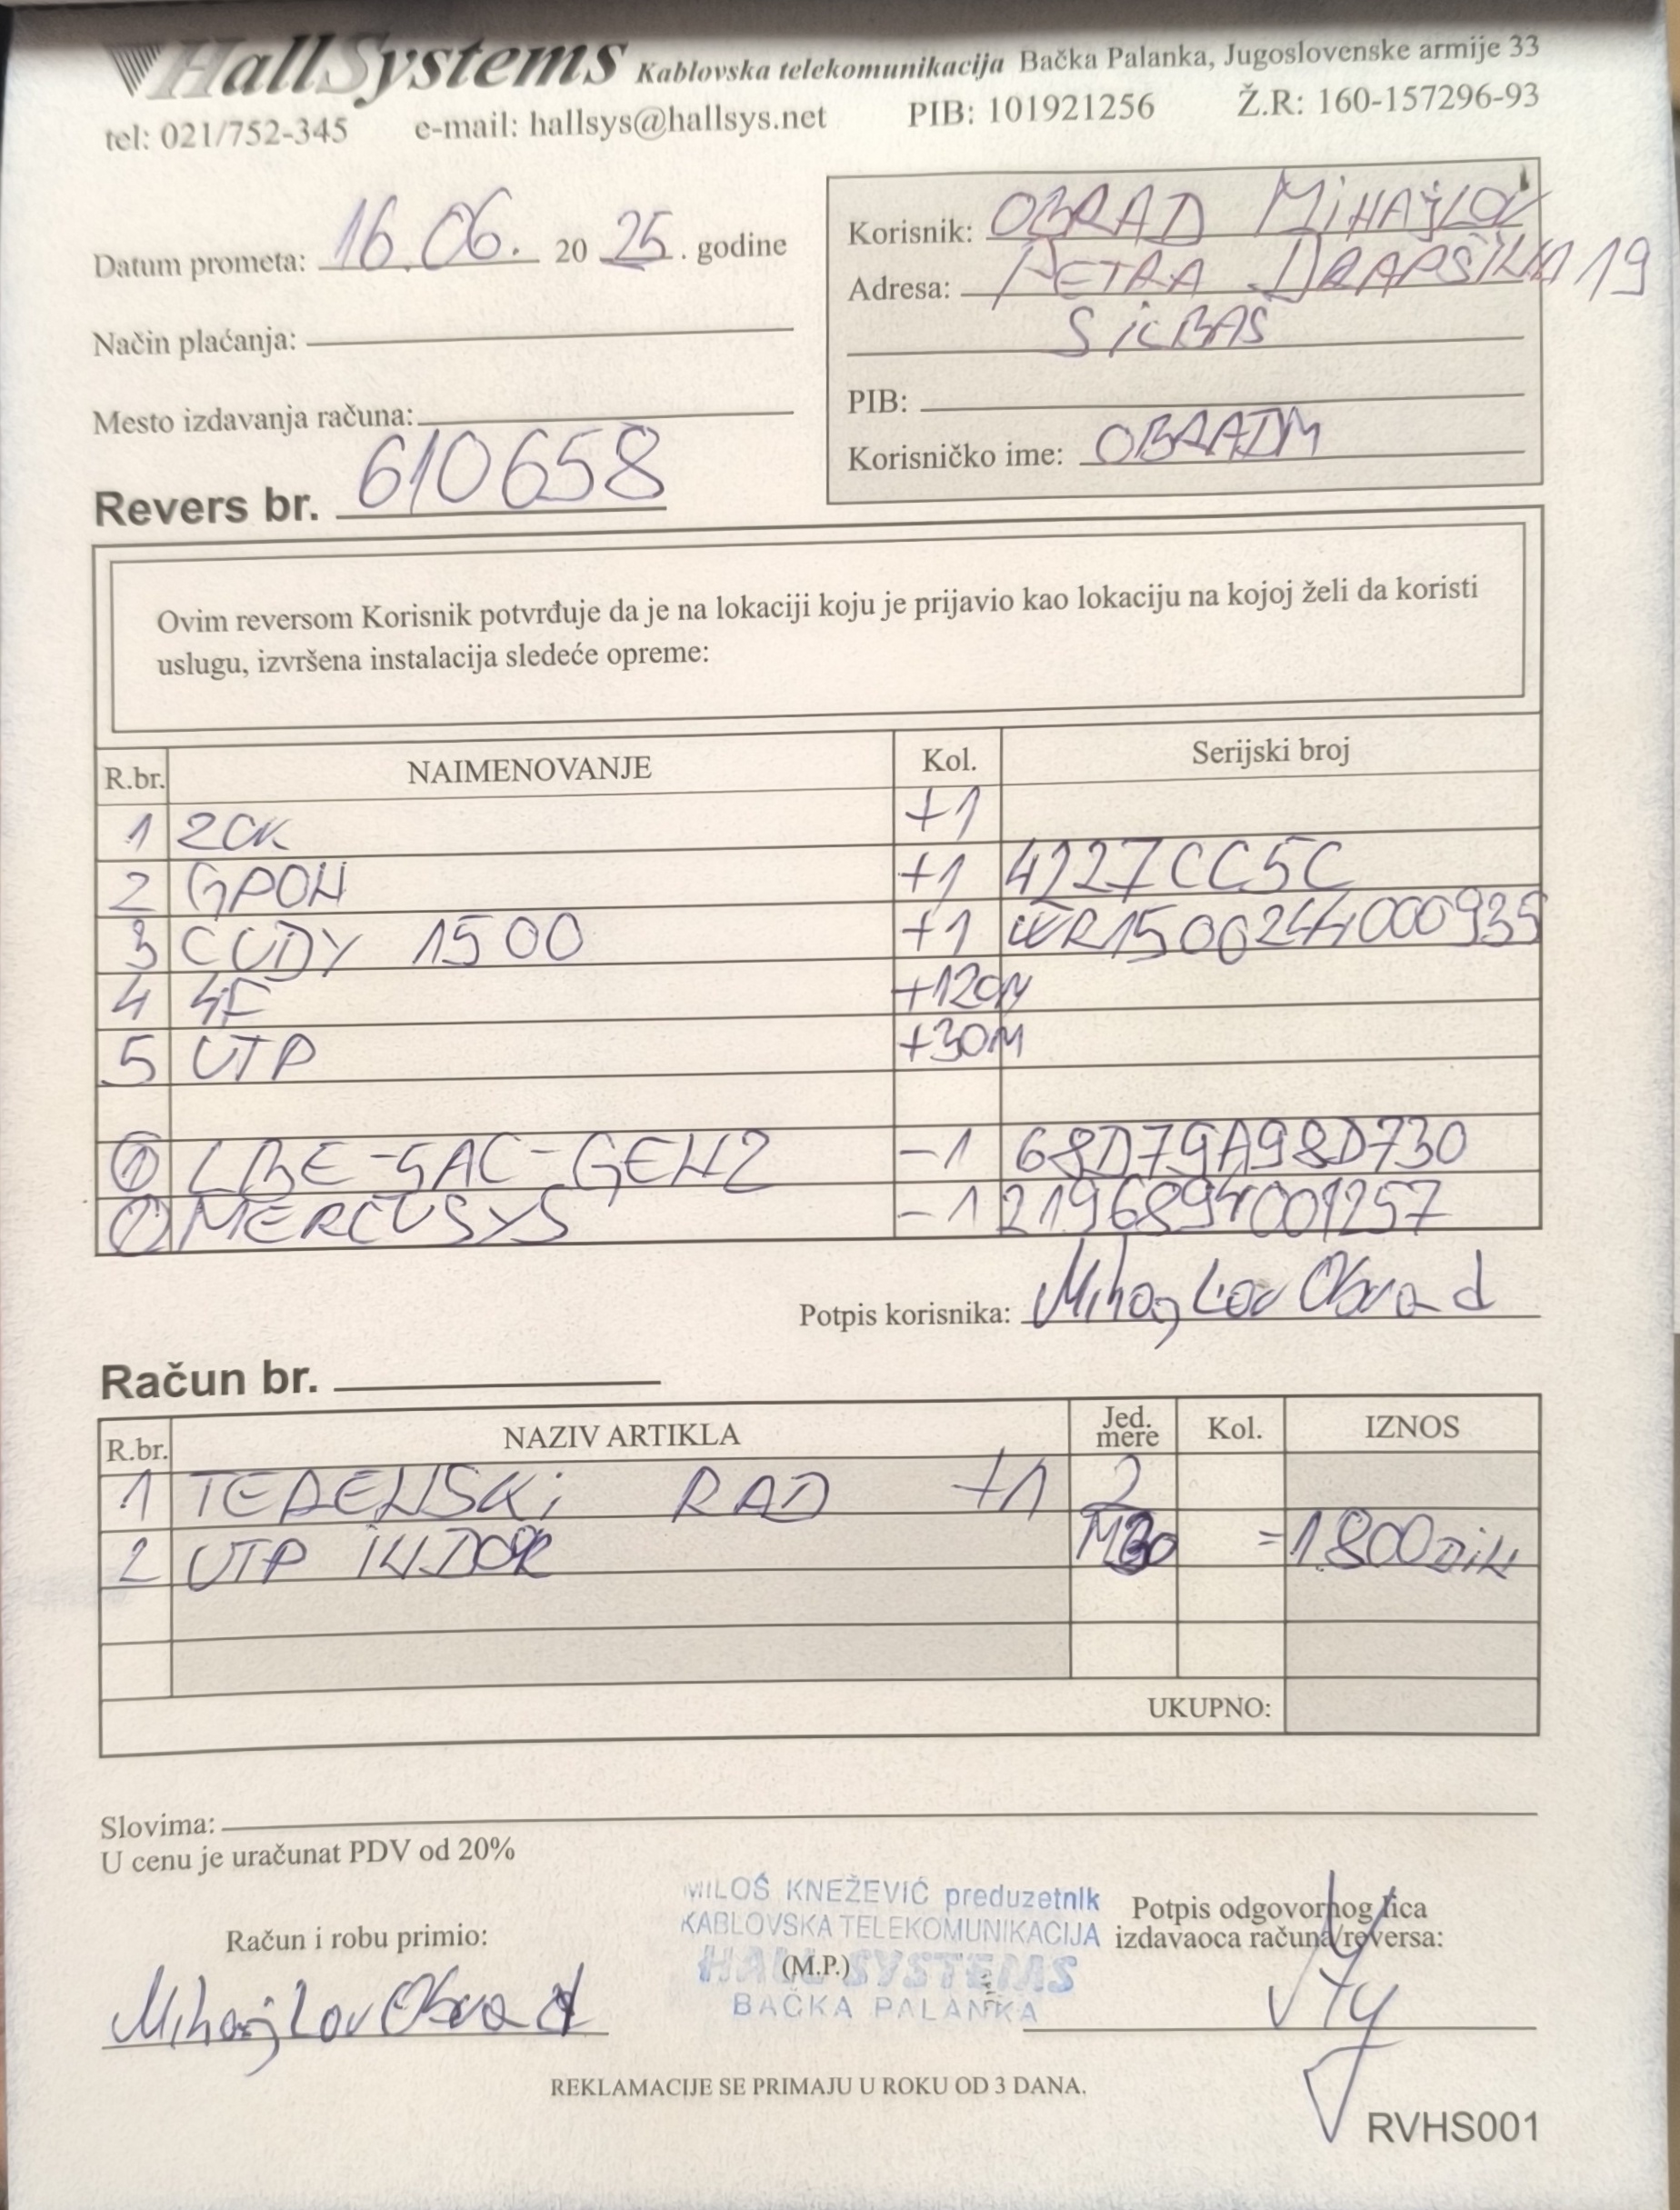 HallSystems Kablovska telekomunikacija Bačka Palanka, Jugoslovenske armije 33
tel: 021/752-345 e-mail: hallsys@hallsys.net PIB: 101921256 Ž.R: 160-157296-93
Datum prometa: 16.06. 20 25. godine
Način plaćanja:
Mesto izdavanja računa:
Revers br. 610658
Korisnik: OBRAD MiHAJLOV
Adresa: PETRA DRAPŠiNA 19
SiLBAŠ
PIB:
Korisničko ime: OBRADM
Ovim reversom Korisnik potvrđuje da je na lokaciji koju je prijavio kao lokaciju na kojoj želi da koristi
uslugu, izvršena instalacija sledeće opreme:
R.br. NAIMENOVANJE Kol. Serijski broj
1 ZOK +1
2 GPON +1 4227CC5C
3 CUDY 1500 +1 WR15002441000935
4 4F +120M
5 UTP +30M
1 LBE-5AC-GEN2 -1 68D79A98D730
2 MERCUSYS -1 2196894001257
Potpis korisnika: Mihajlov Obrad
Račun br.
R.br. NAZIV ARTIKLA Jed. mere Kol. IZNOS
1 TERENSKi RAD +1 2
2 UTP iNDOR M30 =1.800 DiN
UKUPNO:
Slovima:
U cenu je uračunat PDV od 20%
MILOŠ KNEŽEVIĆ preduzetnik
KABLOVSKA TELEKOMUNIKACIJA
HALL SYSTEMS
BAČKA PALANKA
(M.P.)
Račun i robu primio:
Mihajlov Obrad
Potpis odgovornog lica
izdavaoca računa/reversa:
REKLAMACIJE SE PRIMAJU U ROKU OD 3 DANA.
RVHS001